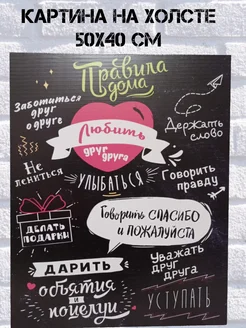 КАРТИНА НА ХОЛСТЕ
50X40 СМ
Правила
дома
Заботиться
друг
о друге
Держать
слово
Любить
друг
друга
Не
лениться
УЛЫБАТЬСЯ
Говорить
правду
ДЕЛАТЬ
ПОДАРКИ
Говорить СПАСИБО
и ПОЖАЛУЙСТА
ДАРИТЬ
объятия
и
поцелуи
Уважать
друг
друга
УСТУПАТЬ